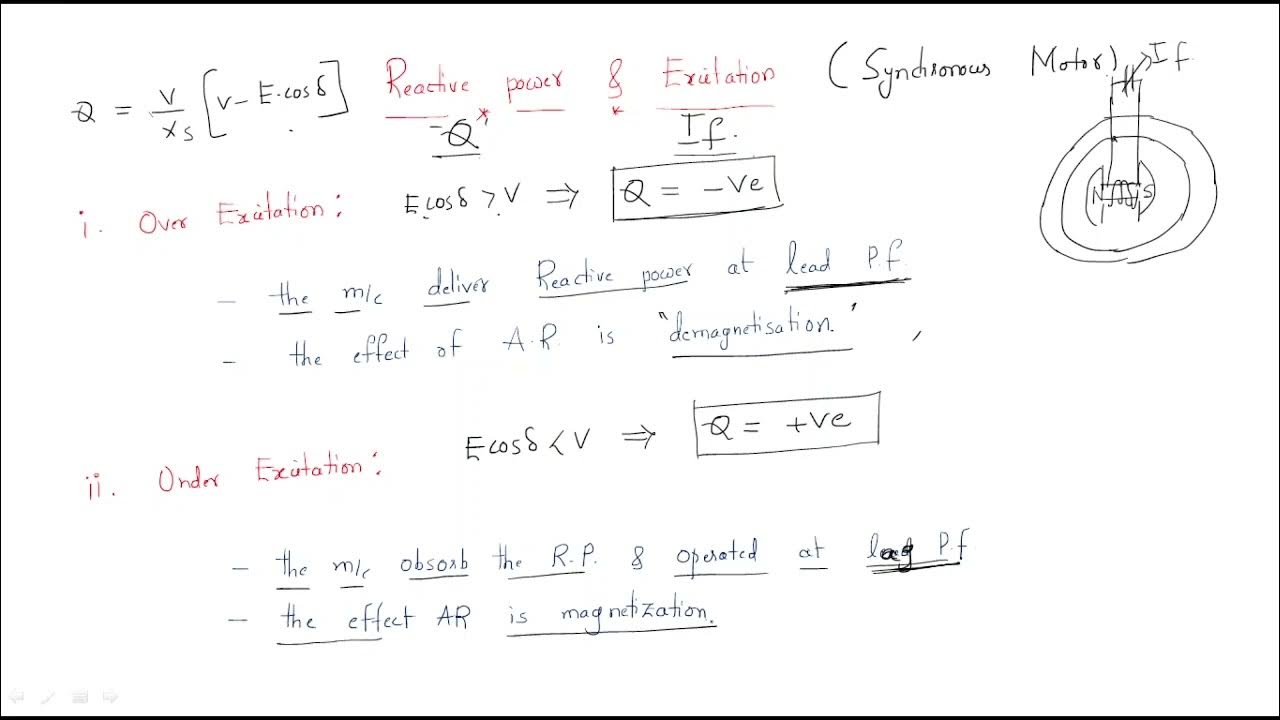 Q = V/Xs [V - E.cosδ] Reactive power & Excitation (Synchronous Motor) If
-Q If.
i. Over Excitation: Ecosδ > V ⇒ Q = -Ve
N S
- the m/c deliver Reactive power at lead P.f.
- the effect of A.R. is "demagnetisation."
Ecosδ < V ⇒ Q = +Ve
ii. Under Excitation:
- the m/c absorb the R.P. & operated at lag P.f
- the effect AR is magnetization.